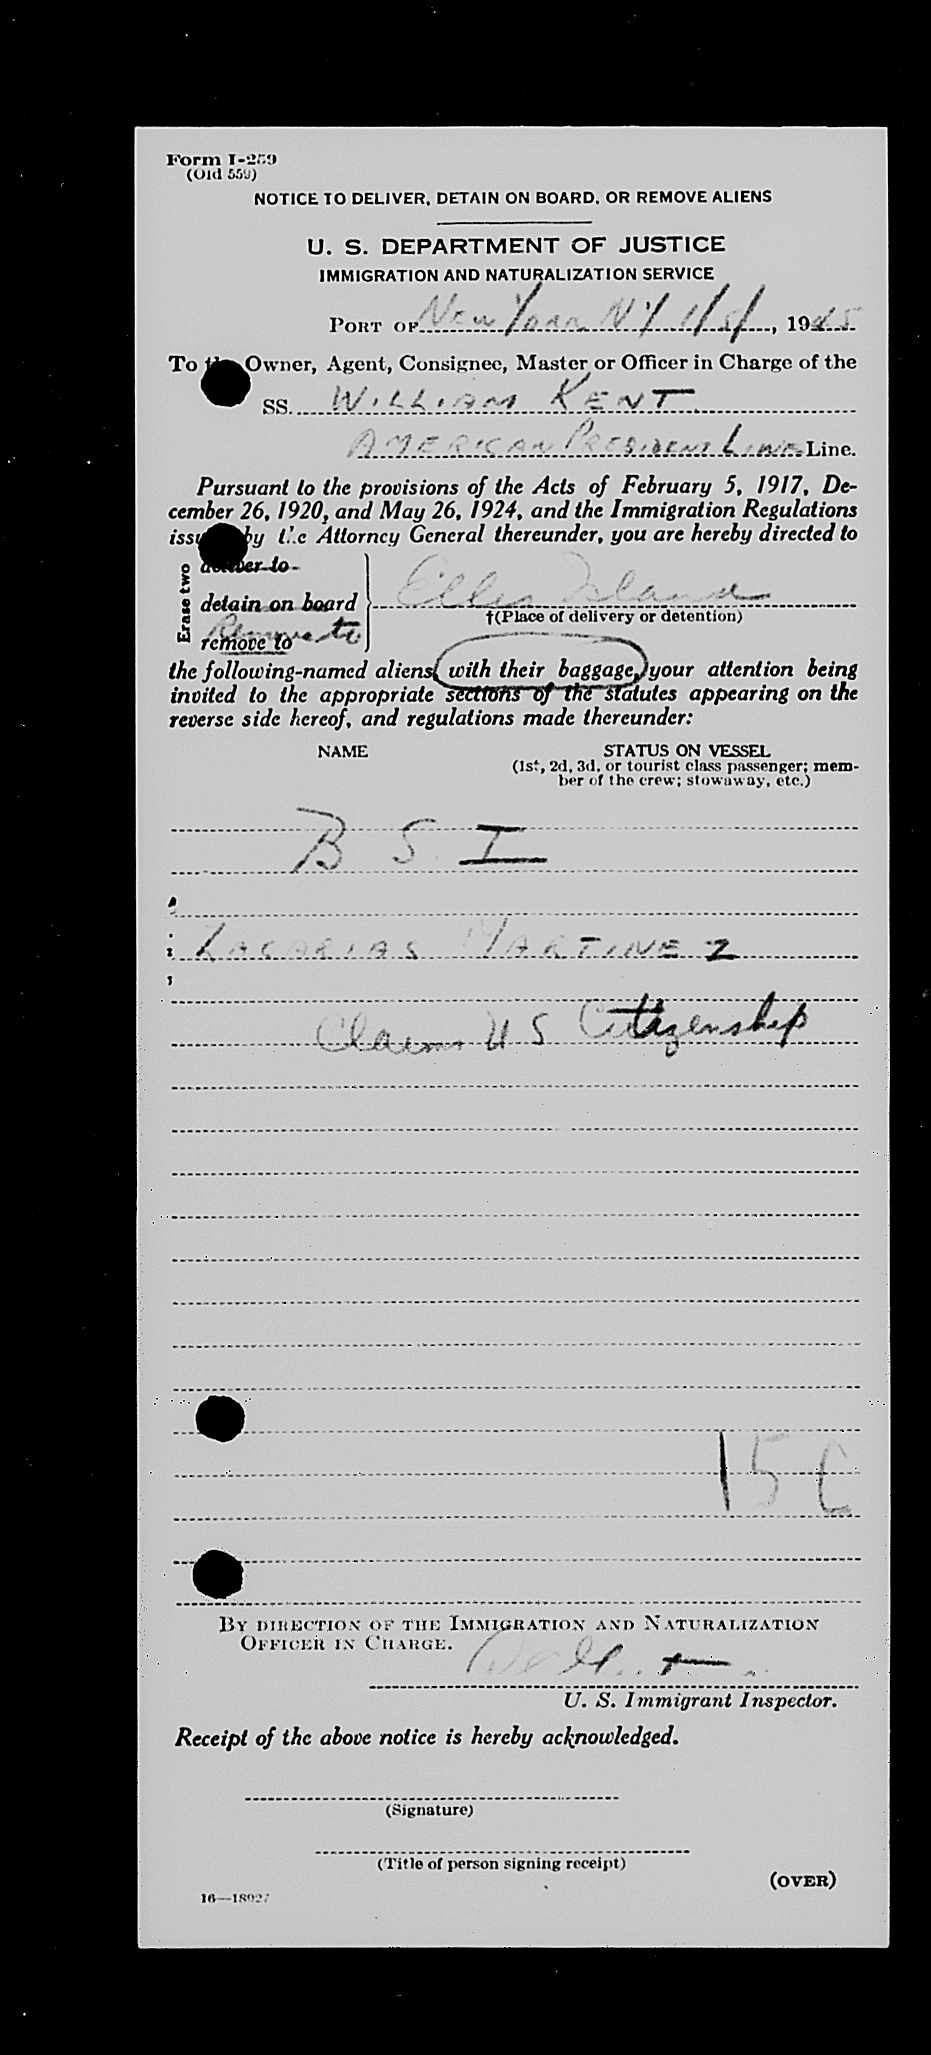 Form I-259
(Old 559)
NOTICE TO DELIVER, DETAIN ON BOARD, OR REMOVE ALIENS
U. S. DEPARTMENT OF JUSTICE
IMMIGRATION AND NATURALIZATION SERVICE
PORT OF New York NY 1/5/, 1945
To the Owner, Agent, Consignee, Master or Officer in Charge of the
SS. WILLIAM KENT
AMERICAN PRESIDENT LINE Line.
Pursuant to the provisions of the Acts of February 5, 1917, De-
cember 26, 1920, and May 26, 1924, and the Immigration Regulations
issued by the Attorney General thereunder, you are hereby directed to
Erase two
deliver to
detain on board
Remove to
remove to
Ellis Island
†(Place of delivery or detention)
the following-named aliens, with their baggage, your attention being
invited to the appropriate sections of the statutes appearing on the
reverse side hereof, and regulations made thereunder:
NAME STATUS ON VESSEL
(1st, 2d, 3d, or tourist class passenger; mem-
ber of the crew; stowaway, etc.)
B S I
ZACARIAS MARTINEZ
Claims U S Citizenship
15 C
BY DIRECTION OF THE IMMIGRATION AND NATURALIZATION
OFFICER IN CHARGE.
U. S. Immigrant Inspector.
Receipt of the above notice is hereby acknowledged.
(Signature)
(Title of person signing receipt)
(OVER)
16—18927